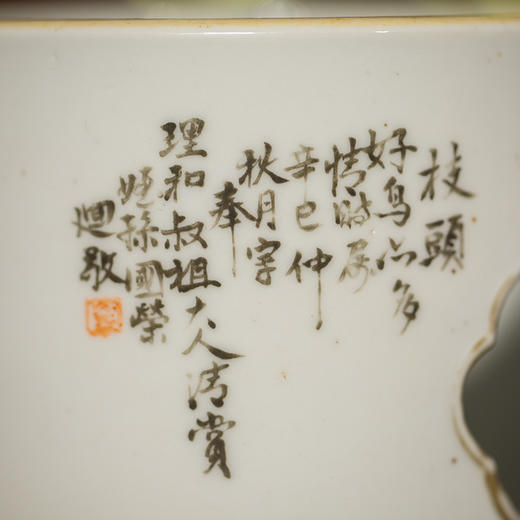 枝頭
好鳥品多
情時属
辛巳仲
秋月字
奉
理和叔祖大人清賞
姪孫國榮
迴敬